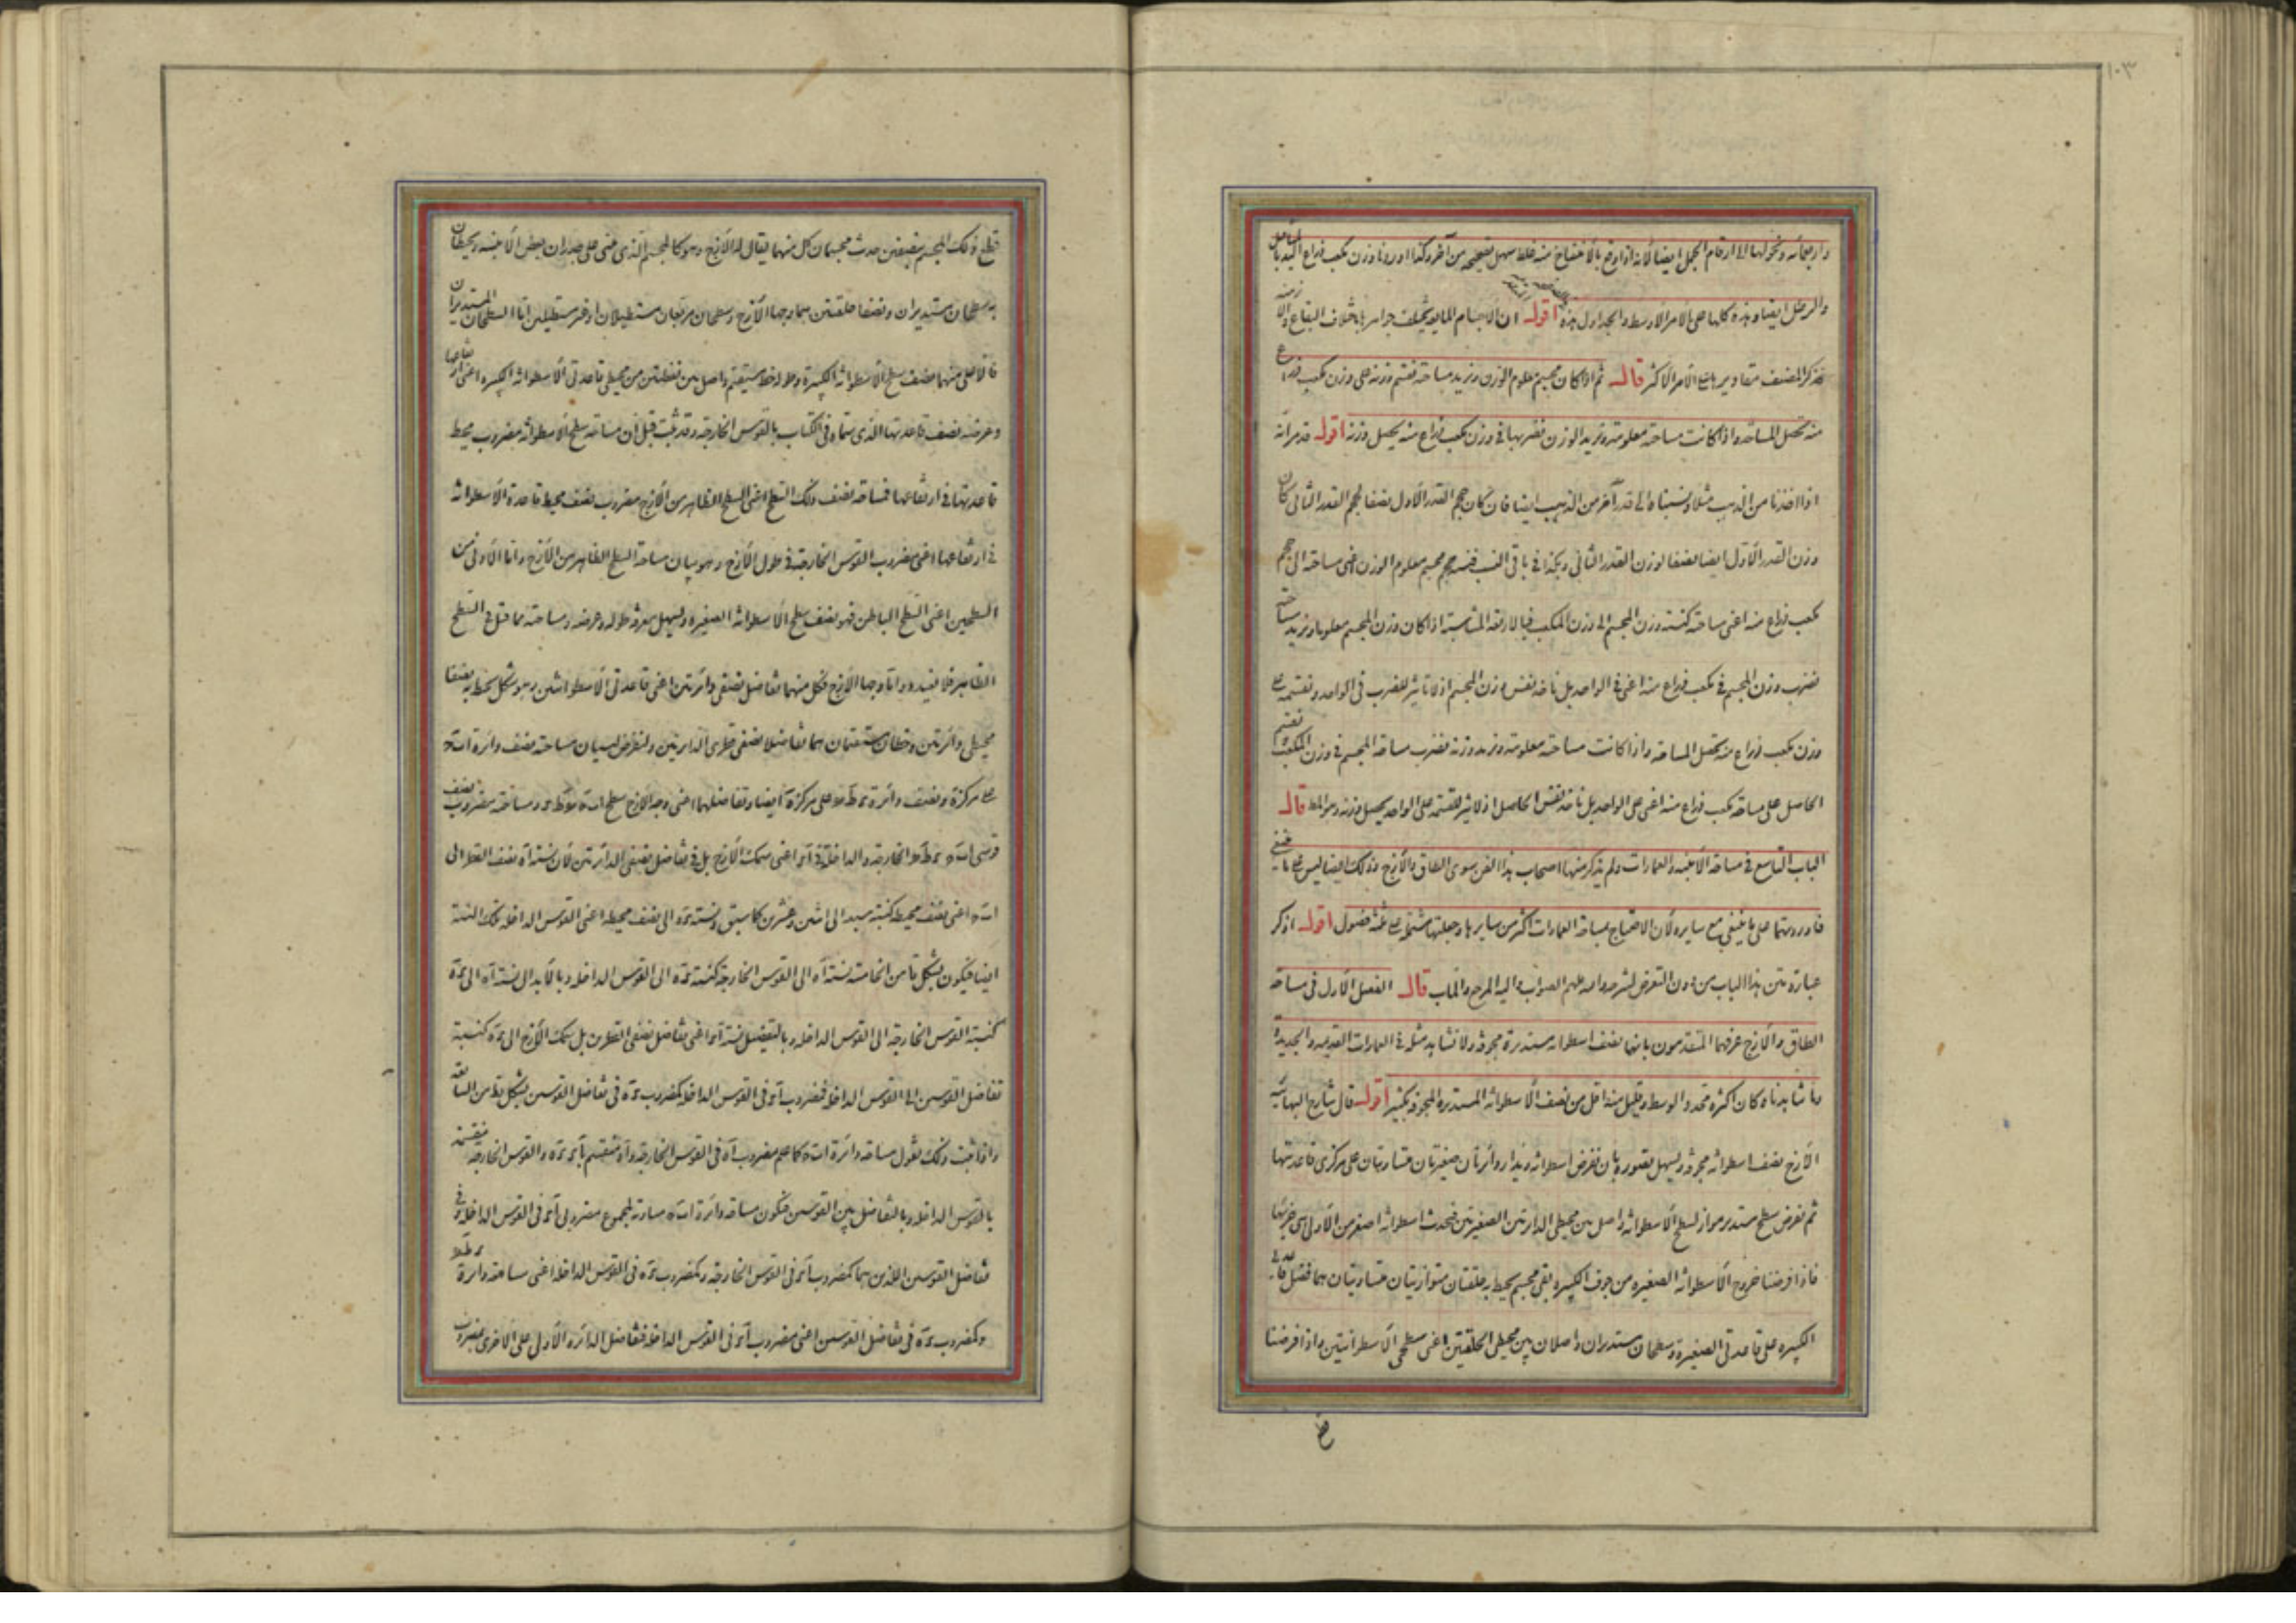 ١٠٣
وارجاته ونحولها الى ارقام الجمل ايضا لانه اذا وقع بالافتتاح منه غلط سهل تصحيحه من آخر وكذا اوردنا وزن مكعب ذراع اليد بالمثاقيل
والرطل ايضا وهذه كلها على الامر الاوسط والجداول هذه اقول ان الاجسام المايه يختلف جواهرها باختلاف البقاع والازمنه
فذكر المصنف مقاديرها على الامر الاكثر قال ثم اذا كان مجسم معلوم الوزن ونريد مساحته نقسم وزنه على وزن مكعب ذراع
منه تحصل المساحه واذا كانت مساحته معلومة ونريد الوزن نضربها فى وزن مكعب ذراع منه يحصل وزنه اقول قد مر انه
اذا اخذنا من الذهب مثلا ونسبناه الى قدر آخر من الذهب ايضا فان كان حجم القدر الاول نصفا لحجم القدر الثانى كان
وزن القدر الاول ايضا نصفا لوزن القدر الثانى وهكذا فى باقى النسب فنسبه حجم مجسم معلوم الوزن اعنى مساحته الى حجم
مكعب ذراع منه اعنى مساحته كنسبة وزن المجسم الى وزن المكعب فبالاربعه المتناسبه اذا كان وزن المجسم معلوما ونريد مساحته
نضرب وزن المجسم فى مكعب ذراع منه اعنى فى الواحد بل ناخذ نفس وزن المجسم اذ لا تاثير للضرب فى الواحد ونقسمه على
وزن مكعب ذراع منه تحصل المساحه واذا كانت مساحته معلومة ونريد وزنه نضرب مساحة المجسم فى وزن المكعب نقسم
الحاصل على مساحة مكعب ذراع منه اعنى على الواحد بل ناخذ نفس الحاصل اذ لا اثر للقسمة على الواحد يحصل وزنه وهو المط قال
الباب التاسع فى مساحة الابنيه والعمارات ولم يذكر منها اصحاب هذا الفن سوى الطاق والازج وذلك ايضا ليس على ما ينبغى
فاوردتهما على ما ينبغى مع سايره لان الاحتياج بمساحة العمارات اكثر من سايرها وجعلتها مشتملة على ثلثه فصول اقول اذكر
عبارة متن هذا الباب من دون التعرض لشرحه والله ملهم الصواب واليه المرجع والمآب قال الفصل الاول فى مساحة
الطاق والازج عرفهما المتقدمون بانها نصف اسطوانه مستديرة مجوفه ولا نشاهد مثله فى العمارات القديمه والجديده
وما شاهدنا وكان اكثره محدد الوسط وقليل منه اقل من نصف الاسطوانه المستديره المجوفه بكثير اقول قال شارح البهائيه
الازج نصف اسطوانه مجوفه وليسهل تصوره بان نفرض اسطوانه ويدار دائرتان صغيرتان متساويتان على مركزى قاعدتها
ثم نفرض سطح مستدير مواز لسطح الاسطوانه واصل بين محيطى الدائرتين الصغيرتين فتحدث اسطوانه اصغر من الاولى هى جزئها
فاذا فرضنا خروج الاسطوانه الصغيره من جوف الكبيره بقى مجسم يحيط به حلقتان متوازيتان متساويتان هما فضل قاعدتى
الكبيره على قاعدتى الصغيرة وسطحان مستديران واصلان بين محيطى الحلقتين اعنى سطحى الاسطوانتين واذا فرضنا
قطع ذلك المجسم بنصفين حدث مجسمان كل منهما يقال له الازج وهو كالمجسم الذى مبنى على جدران بعض الابنيه ويحيطان
به سطحان مستديران ونصفا حلقتين هما وجها الازج وسطحان مربعان مستطيلان او غير مستطيلين اما السطحان المستديران
فالاعلى منهما نصف سطح الاسطوانه الكبيرة وطوله خط مستقيم واصل بين نقطتين من محيطى قاعدتى الاسطوانه الكبيره اعنى ارتفاعها
وعرضه نصف قاعدتها الذى سماه فى الكتاب بالقوس الخارجه وقد ثبت قبل ان مساحة سطح الاسطوانه مضروب محيط
قاعدتها فى ارتفاعها فمساحة نصف ذلك السطح اعنى السطح الظاهر من الازج مضروب نصف محيط قاعدة الاسطوانه
فى ارتفاعها اعنى مضروب القوس الخارجة فى طول الازج وهو بيان مساحة السطح الظاهر من الازج واما الاولى من
السطحين اعنى السطح الباطن فهو نصف سطح الاسطوانه الصغيره وليسهل معرفة طوله وعرضه ومساحته مما قيل فى السطح
الظاهر فلا نفيده واما وجها الازج فكل منهما تفاضل نصفى دائرتين اعنى قاعدتى الاسطوانتين وهو شكل يحيط به نصفا
محيطى دائرتين وخطان مستقيمان هما تفاضلا نصفى قطرى الدائرتين ولنفرض لبيان مساحته نصف دائرة
على مركز ه ونصف دائرة على مركز ه ايضا وتفاضلهما اعنى وجه الازج سطح ومساحته مضروب نصف
قوسى الخارجه والداخلة فى اعنى سمك الازج بل فى تفاضل نصفى الدائرتين لان نسبة اه نصف القطر الى
اعنى نصف محيطه كنسبة سبعه الى اثنين وعشرين كما سبق ونسبة الى نصف محيطه اعنى القوس الداخله تلك النسبة
ايضا فيكون بشكل يا من الخامسة نسبة اه الى القوس الخارجه كنسبة الى القوس الداخله وبالابدال نسبة اه الى
كنسبة القوس الخارجه الى القوس الداخله وبالتفصيل نسبة اعنى تفاضل نصفى القطرين بل سمك الازج الى كنسبة
تفاضل القوسين الى القوس الداخله فمضروب فى القوس الداخله كمضروب فى تفاضل القوسين بشكل يط من السابعه
واذا ثبت ذلك نقول مساحة دائرة كما علم مضروب اه فى القوس الخارجه واه منقسم والقوس الخارجه منقسمه
بالقوس الداخله وبالتفاضل بين القوسين فتكون مساحة دائرة مساوية لمجموع مضروبى فى القوس الداخله وفى
تفاضل القوسين اللذين هما كمضروب فى القوس الخارجه وكمضروب فى القوس الداخله اعنى مساحة دائرة
وكمضروب فى تفاضل القوسين اعنى مضروب فى القوس الداخله فتفاضل الدائره الاولى على الاخرى مضروب